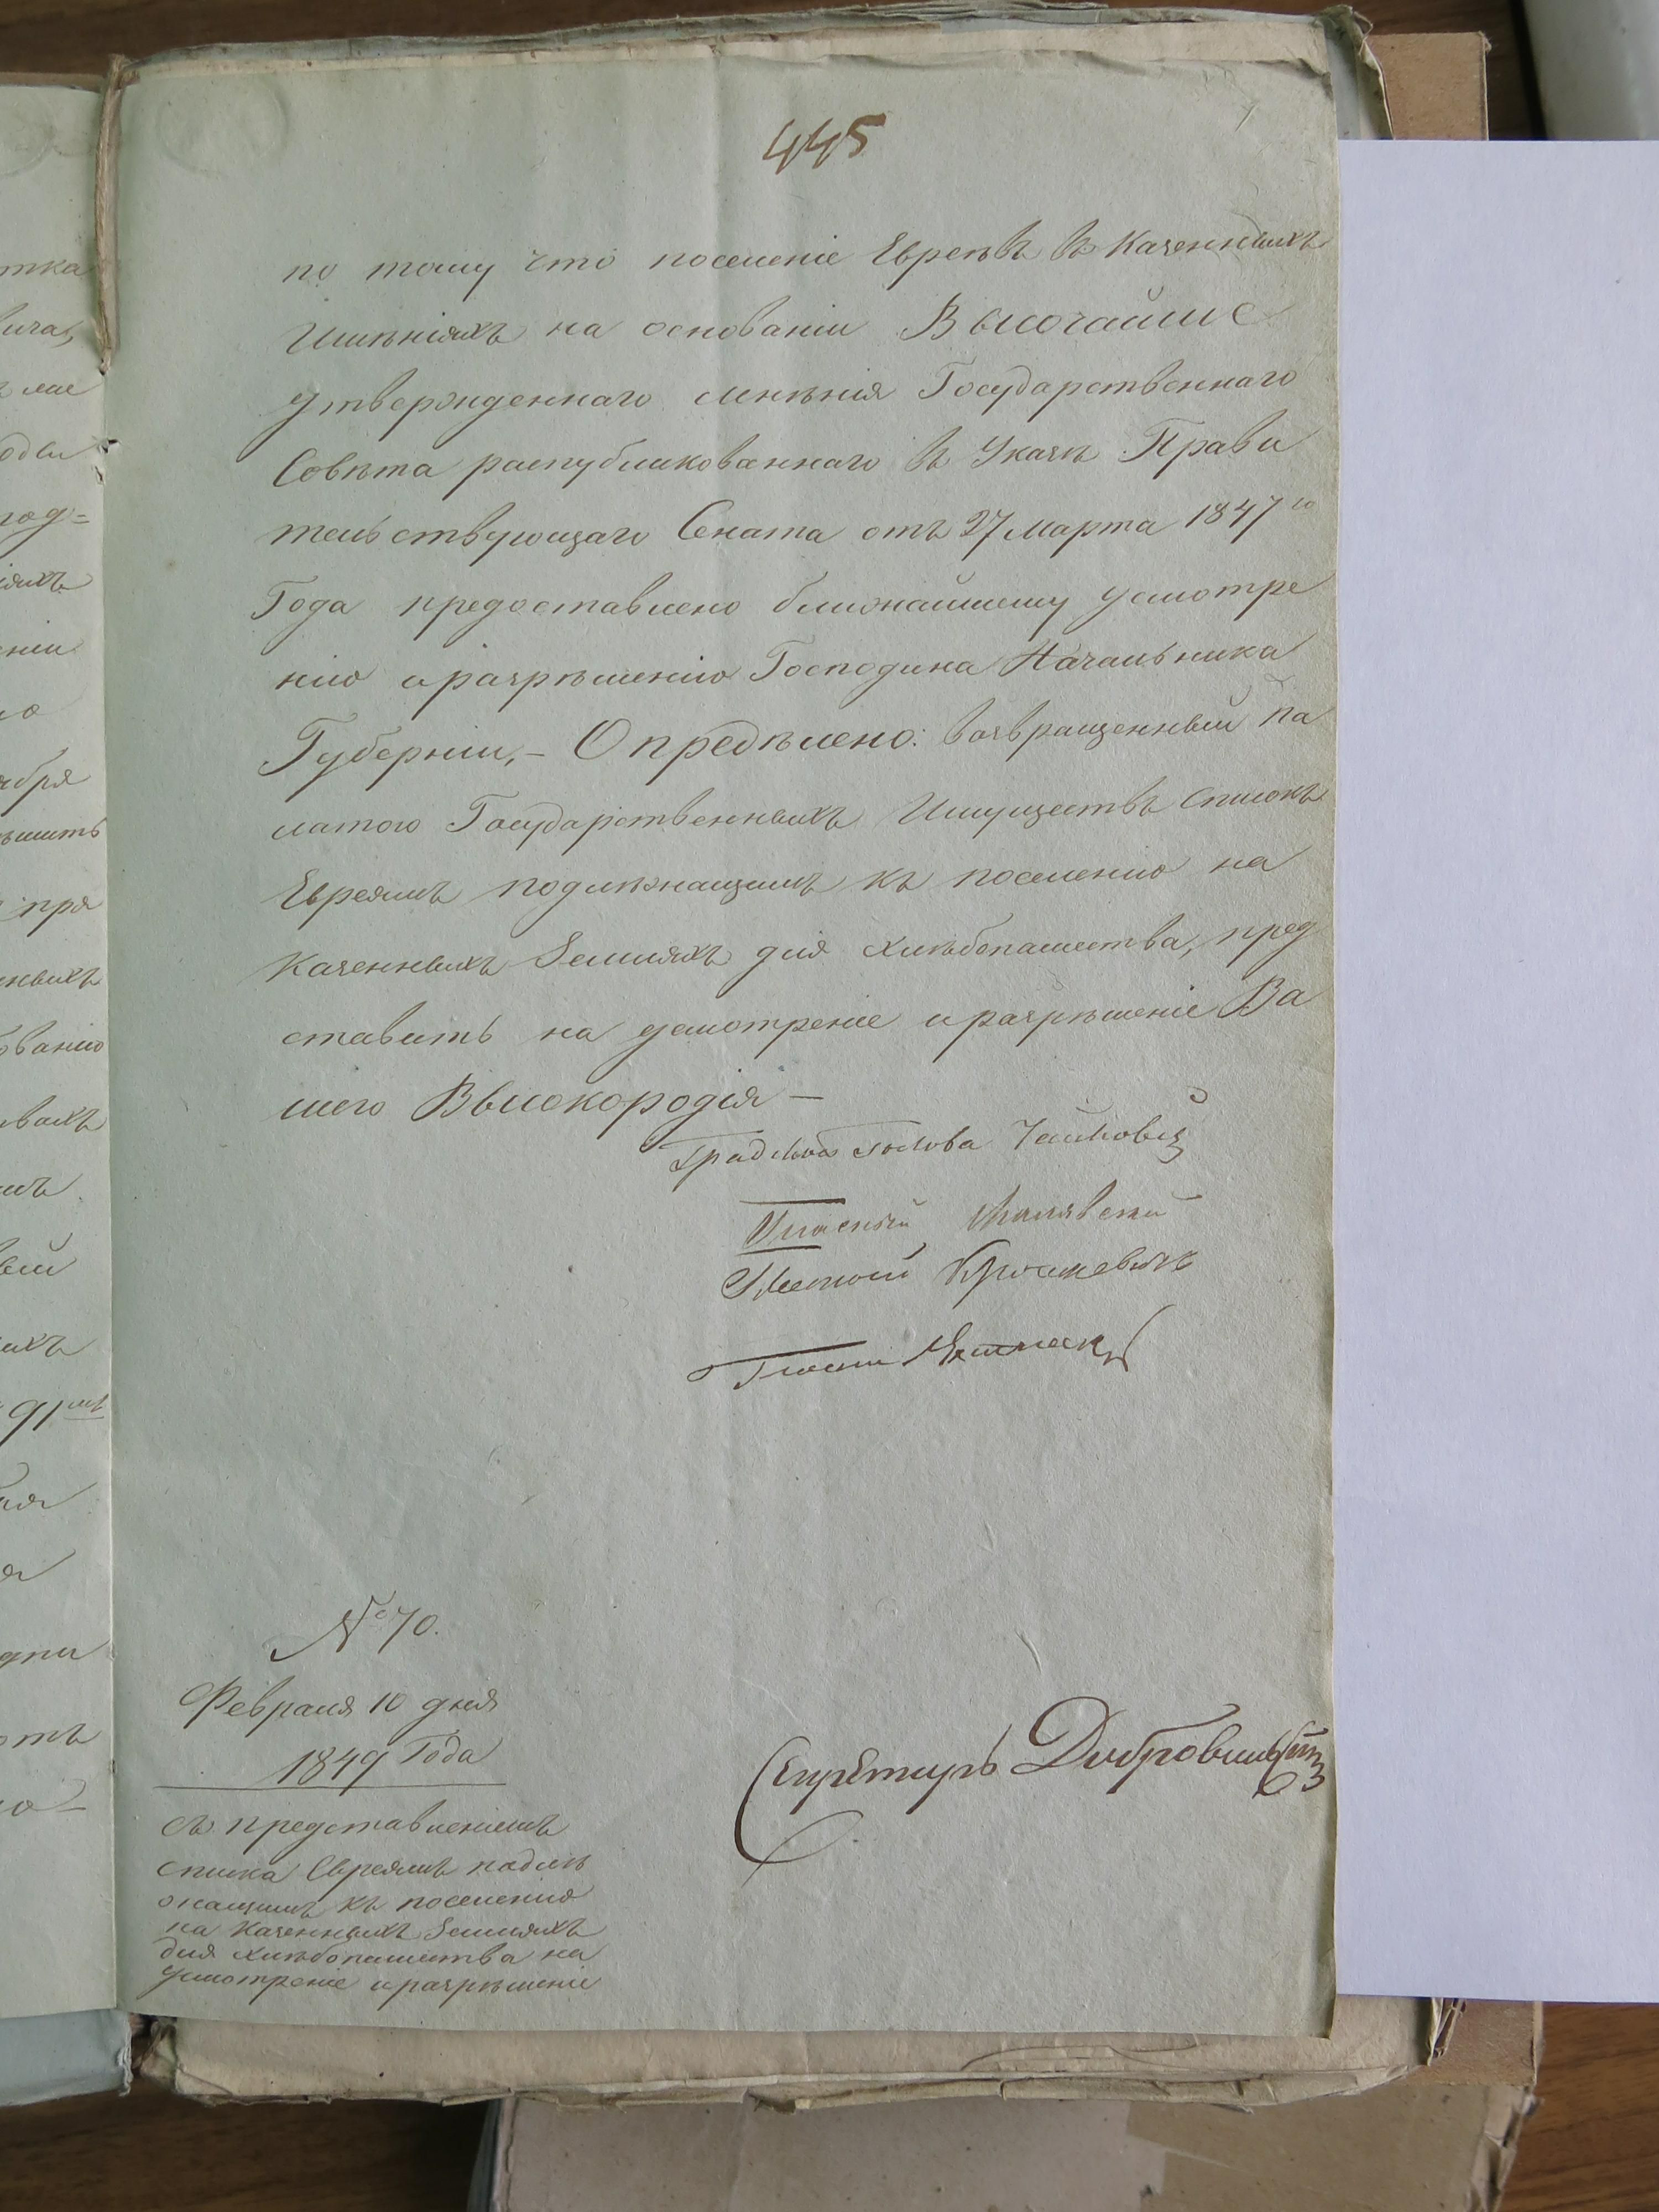 445
по тому что поселеніе Евреевъ въ Казенныхъ
Имѣніяхъ на основаніи Высочайше
утвержденнаго мнѣнія Государственнаго
Совѣта распубликованнаго въ Указѣ Прави
тельствующаго Сената отъ 27 Марта 1847го
Года предоставлено ближайшему усмотре
нію и разрѣшенію Господина Начальника
Губерніи, – Опредѣлено: возвращенный па
латою Государственныхъ Имуществъ списокъ
Евреямъ подлѣжащимъ къ поселенію на
Казенныхъ Земляхъ для хлѣбопашества, пред
ставить на усмотреніе и разрѣшеніе Ва
шего Высокородія –
Градской Голова
Гласный
Гласный
Гласный
№ 70.
Февраля 10 дня
1849 Года
Секретарь
съ представленіемъ
списка Евреямъ подлѣ
жащимъ къ поселенію
на Казенныхъ Земляхъ
для хлѣбопашества на
усмотреніе и разрѣшеніе
тка
вича,
одъ=
ніи
ября
пра
ныхъ
ванію
вый
91
отъ